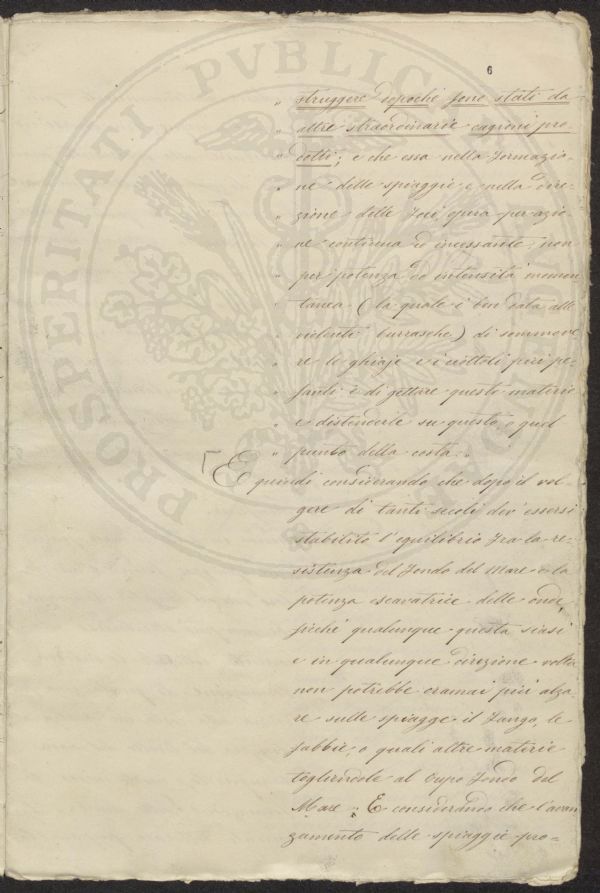 PROSPERITATI PVBLICAE
6
" struggere dopochè sono stati da
" altre straordinarie cagioni pro-
" dotti; e che essa nella formazio-
" ne delle spiaggie e nella dire-
" zione delle foci, opera per azio-
" ne continua ed incessante, non
" per potenza od intensità momen
" tanea (la quale è ben data alle
" violente burrasche) di sommove
" re le ghiaje e i ciottoli più pe-
" santi e di gettare queste materie
" e distenderle su questo o quel
" punto della costa."
E quindi considerando che dopo il vol-
gere di tanti secoli dev'essersi
stabilito l'equilibrio fra la re-
sistenza del fondo del Mare e la
potenza escavatrice delle onde,
sichè qualunque questa siasi
e in qualunque direzione volta
non potrebbe oramai più alza
re sulle spiagge il fango, le
sabbie, o quali altre materie
togliendole al cupo fondo del
Mare; E considerando che l'avan
zamento delle spiaggie pro=